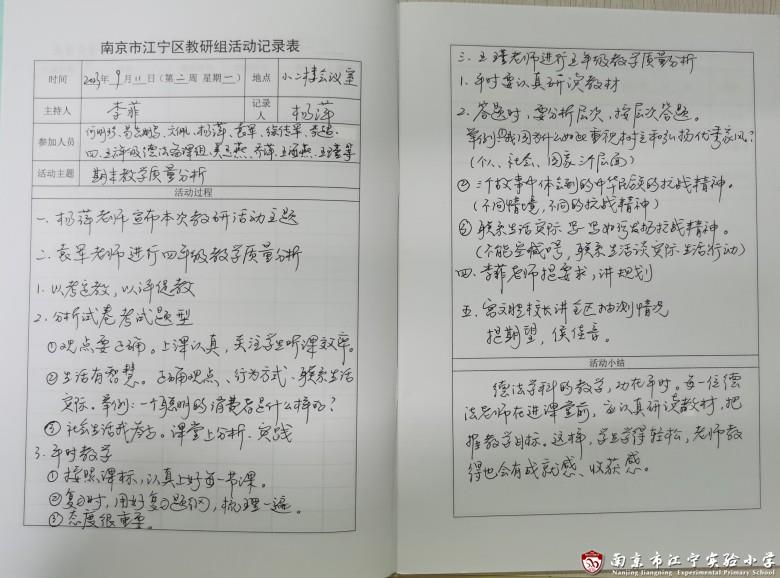 南京市江宁区教研组活动记录表
时间 2023年9月11日(第二周 星期一) 地点 小二楼会议室
主持人 李菲 记录人 杨萍
参加人员 杨萍、袁军、
四、五年级德法备课组
活动主题 期末教学质量分析
活动过程
一、杨萍老师宣布本次教研活动主题
二、袁军老师进行四年级教学质量分析
1. 以考定教,以评促教
2. 分析试卷考试题型
①观点要正确。上课认真,关注学生听课效率。
②生活有智慧。正确观点、行为方式、联系生活
实际。举例:一个聪明的消费者是什么样的?
③社会生活我参与。课堂上分析、实践
3. 平时教学
①按照课标,认真上好每一节课。
②复习时,用好复习题纲,梳理一遍。
③态度很重要。
三、王瑾老师进行五年级教学质量分析
1. 平时要认真研读教材
2. 答题时,要分析层次,按层次答题。
举例:①我国为什么如此重视树立和弘扬优秀家风?
(个人、社会、国家三个层面)
②三个故事中体会到的中华民族的抗战精神。
(不同情境,不同的抗战精神)
③联系生活实际写一写如何发扬抗战精神。
(不能空喊口号,联系生活谈实际生活行动)
四、李菲老师提要求,讲规划
五、校长讲全区抽测情况
提期望,候佳音。
活动小结
德法学科的教学,功在平时。每一位德
法老师在进课堂前,应认真研读教材,把
握教学目标。这样,学生学得轻松,老师教
得也会有成就感、收获感。
南京市江宁实验小学
Nanjing Jiangning Experimental Primary School